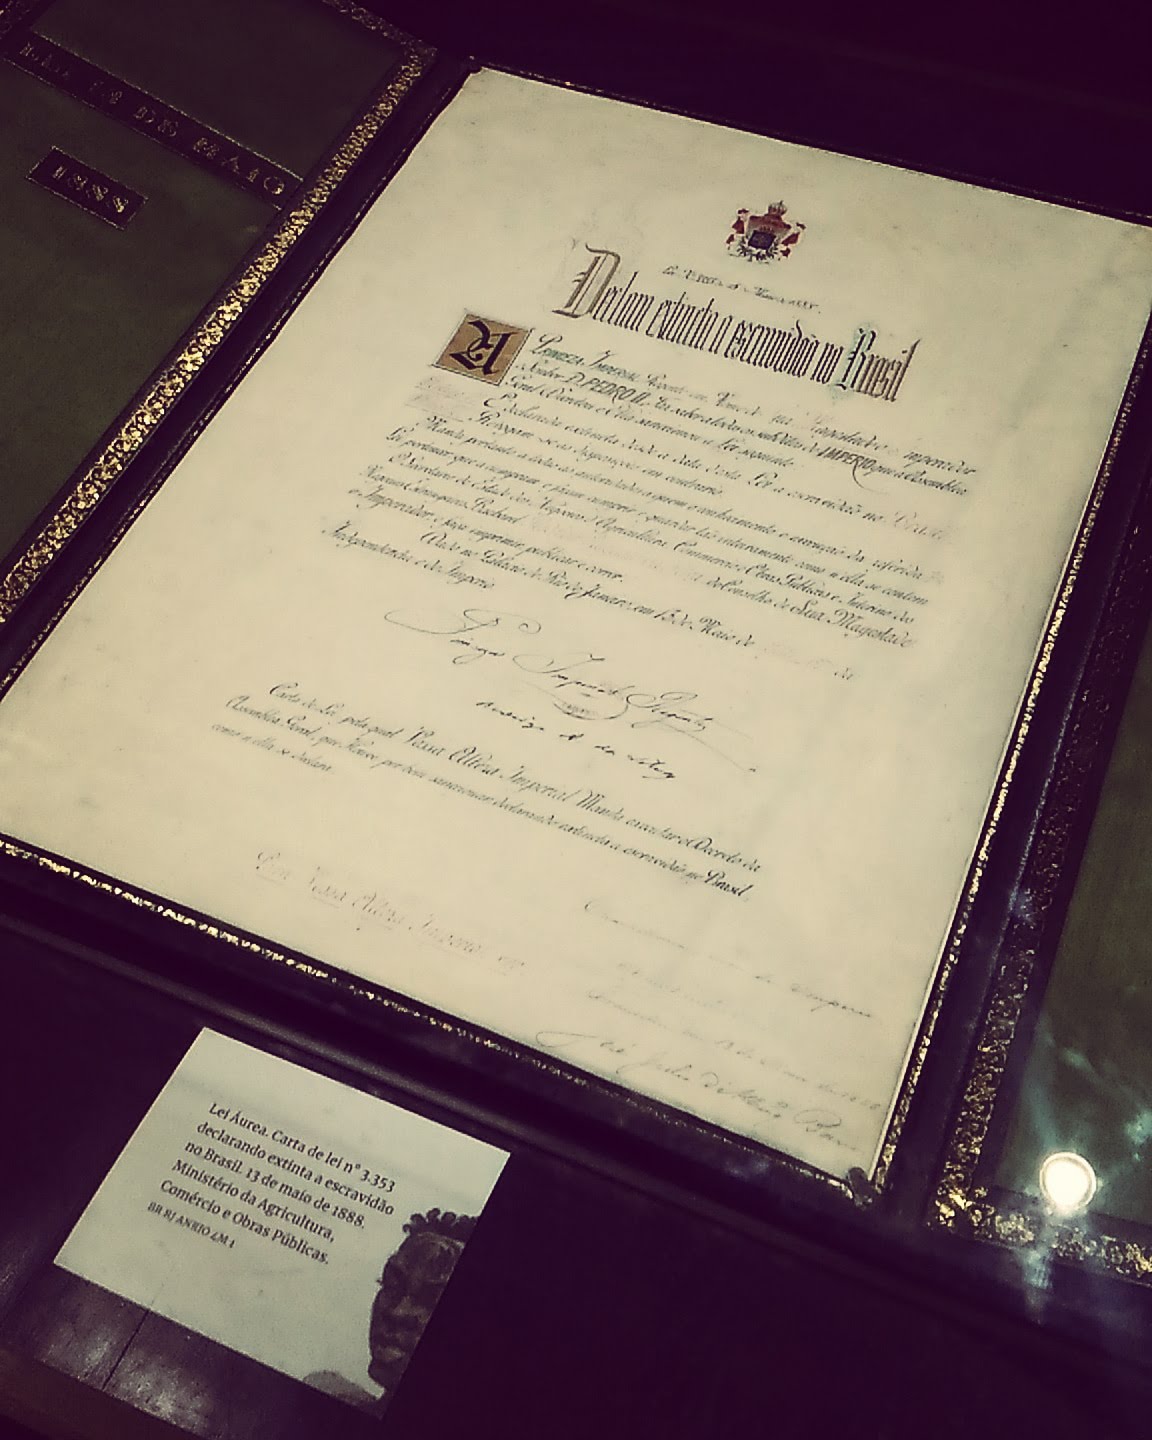 DE MAIO
1888
Declara extincta a escravidão no Brasil
A PRINCEZA IMPERIAL Regente em Nome de Sua Magestade o Imperador
Senhor D. PEDRO II, Faz saber a todos os subditos do IMPERIO que a Assembléa
Geral Decretou e Ella sanccionou a Lei seguinte
É declarada extincta desde a data desta Lei a escravidão no Brazil
Revogam-se as disposições em contrario
Manda portanto a todas as autoridades a quem o conhecimento e execução da referida
Lei pertencer que a cumpram e façam cumprir e guardar tão inteiramente como n'ella se contem
O Secretario de Estado dos Negocios d'Agricultura Commercio e Obras Publicas e Interino dos
Negocios Estrangeiros Bacharel do Conselho de Sua Magestade
o Imperador o faça imprimir publicar e correr.
Dado no Palacio do Rio de Janeiro em 13 de Maio de da
Independencia e do Imperio
Princeza Imperial Regente
Carta de Lei, pela qual Vossa Alteza Imperial Manda executar o Decreto da
Assembléa Geral, que Houve por bem sanccionar declarando extincta a escravidão no Brasil,
como n'ella se declara
Para Vossa Alteza Imperial ver
Lei Áurea. Carta de lei nº 3.353
declarando extinta a escravidão
no Brasil. 13 de maio de 1888.
Ministério da Agricultura,
Comércio e Obras Públicas.
BR RJ ANRIO 4M 1